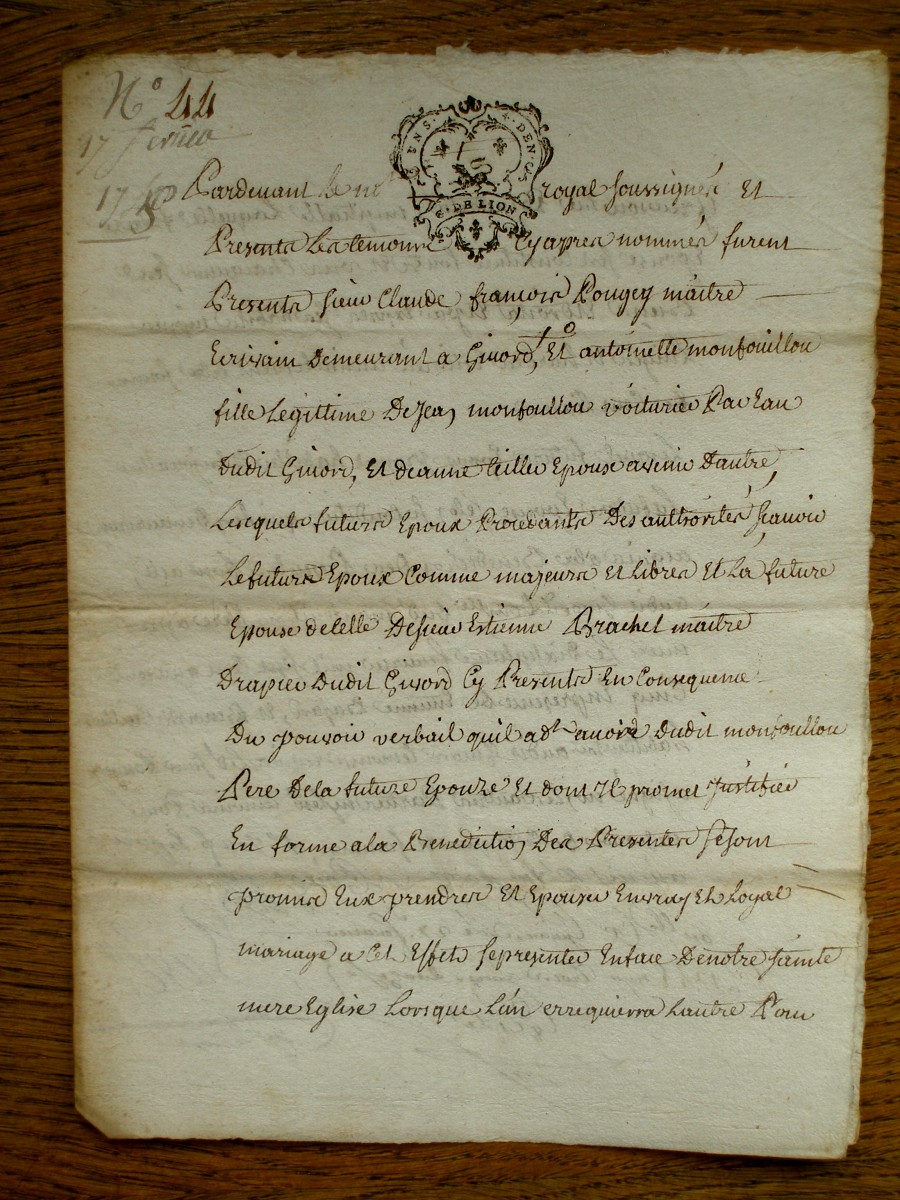 N.o 44
17 fevrier
17
GENS . 4 . DEN CS
G . DE LION
Pardevant le no royal soussignés et
Presents Les temoins Cy apres nommés furent
Presents sieur Claude françois Pougey maitre
Ecrivain Demeurant a Givord, Et antoinette monfouillou
fille Legittime De Jean monfoullou voiturier Par Eau
Dudit Givord, Et deanne teillu Epoux avenir Dautre,
Lesquels futurs Epoux Procedants Des authorités sçavoir
Le futurs Epoux Comme majeurs et Libres et La future
Epouse de Celle De sieur Estienne Brachet maitre
Drapier Dudit Givord Cy Presents En Consequence
Du pouvoir verbail quil a dt avoir Dudit monfoullou
Pere De la future Epouze Et dont Il promet Justifier
En forme a la Benediction Des Presentes se sont
promis Eux prendres Et Epouser En vray Et Loyal
mariage a Cet Effets se presenter En face De notre sainte
mere Eglise Lorsque L'un en requierra Lautre Pour